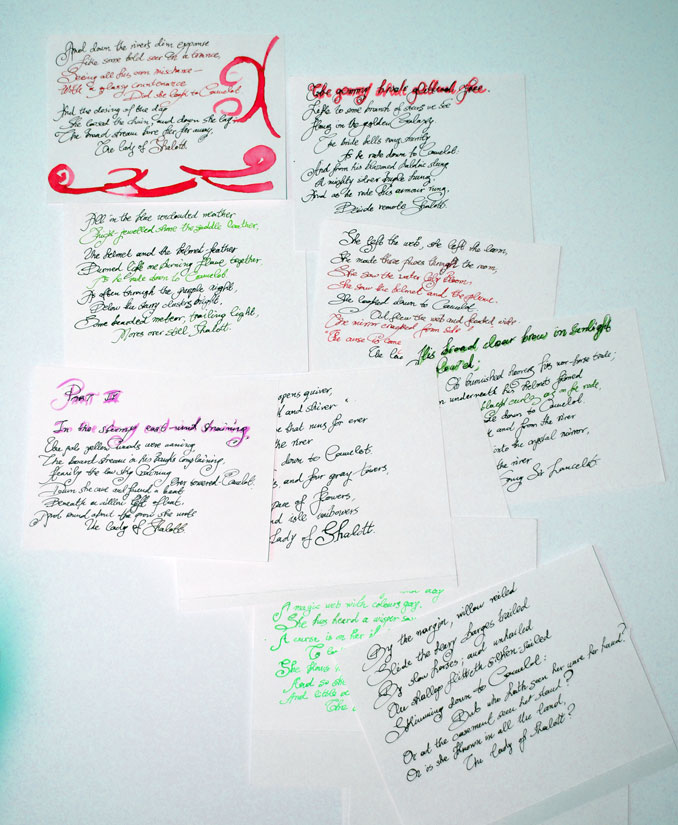 And down the rivers dim expanse
Like some bold seer in a trance,
Seeing all his own mischance—
With a glassy countenance
Did she look to Camelot.
And the closing of the day
She loosed the chain, and down she lay
The broad stream bore her far away,
The lady of Shalott
The gemmy bridle glittered free.
Like to some branch of stars we see
Hung in the golden Galaxy
The bridle bells rang merrily
As he rode down to Camelot.
And from his blazoned baldric slung
A mighty silver bugle hung,
And as he rode his armour rung,
Beside remote Shalott.
All in the blue unclouded weather
jewelled shone the saddle leather,
The helmet and the helmet-feather
Burned like one burning flame together
As he rode down to Camelot
As often through the purple night,
Below the starry clusters bright,
Some bearded meteor, trailing light,
Moves over still Shalott.
She left the web, she left the loom,
She made three paces through the room,
She saw the water lily bloom,
She saw the helmet and the plume.
She looked down to Camelot,
Out flew the web and floated wide
The mirror cracked from side
The curse is come
The La
His broad clear brow in sunlight
glow'd;
On burnished hooves his war-horse trode;
underneath his helmet flowed
black curls as on he rode,
he rode down to Camelot.
and from the river
into the crystal mirror,
the river
Sang Sir Lancelot.
Part IV
In the stormy east-wind straining,
The pale yellow woods were waning,
The broad stream in his banks complaining,
Heavily the low sky raining
Over towered Camelot.
Down she came and found a boat
Beneath a willow left afloat
And round about the prow she wrote
The lady of Shalott.
pens quiver,
and shiver
that runs for ever
the river
down to Camelot.
and four gray towers,
space of flowers,
isle imbowers
Lady of Shalott.
A magic web with colours gay,
She has heard a wisper sa
A curse is on her if
To lo
She knows
And so
And little
The
By the margin, willow veiled
Slide the heavy barges trailed
By slow horses; and unhailed
The shallop flitteth silken-sailed
Skimming down to Camelot:
But who hath seen her wave her hand?
Or at the casement seen her stand?
Or is she known in all the land,
The lady of Shalott?